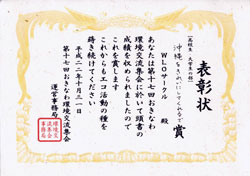 表彰状
【高校生・大学生の部】
沖縄をきれいにしてくれるで賞
WLOサークル 殿
あなたは第十七回おきなわ
環境交流集会に於いて頭書の
成績を収められましたので
これを賞します
これからもエコ活動の種を
蒔き続けてください
平成二二年十月三一日
第十七回おきなわ環境交流集会
運営事務局